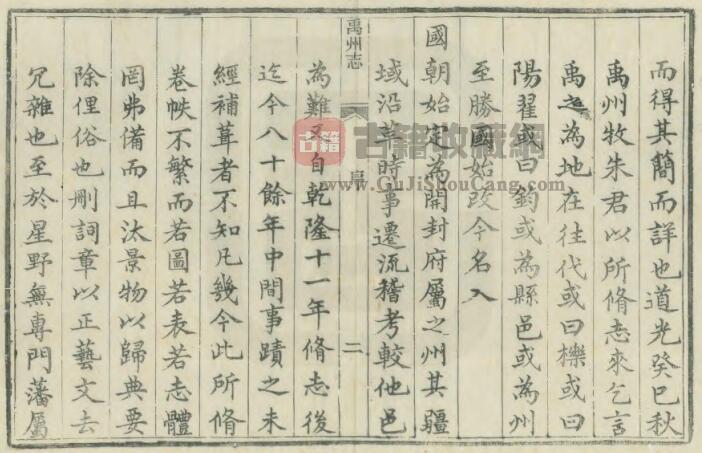 而得其簡而詳也道光癸巳秋
禹州牧朱君以所脩志來乞言
禹之為地在往代或曰櫟或曰
陽翟或曰鈞或為縣邑或為州
至勝國始改今名入
國朝始定為開封府屬之州其疆
域沿革時事遷流稽考較他邑
禹州志
序
二
為難又自乾隆十一年脩志後
迄今八十餘年中間事蹟之未
經補葺者不知凡幾今此所脩
卷帙不繁而若圖若表若志體
罔弗備而且汰景物以歸典要
除俚俗也刪詞章以正藝文去
冗雜也至於星野無專門藩屬
古籍
古籍收藏網
www.GuJiShouCang.com